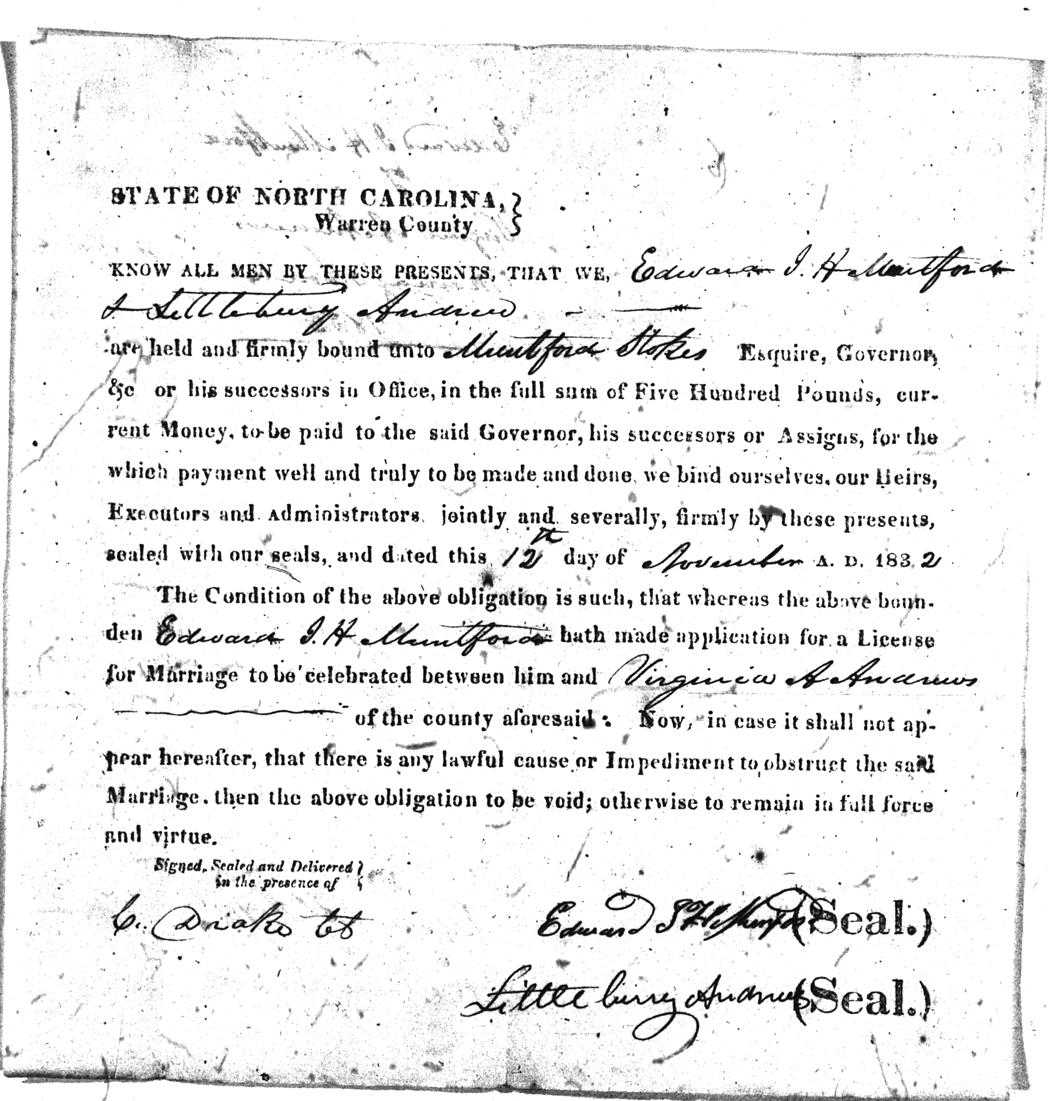 STATE OF NORTH CAROLINA,
Warren County
KNOW ALL MEN BY THESE PRESENTS, THAT WE, Edward I. H Muntford
& Littlebury Andrew
are held and firmly bound unto Muntford Stokes Esquire, Governor,
&c or his successors in Office, in the full sum of Five Hundred Pounds, cur-
rent Money, to be paid to the said Governor, his successors or Assigns, for the
which payment well and truly to be made and done, we bind ourselves, our Heirs,
Executors and Administrators, jointly and severally, firmly by these presents,
sealed with our seals, and dated this 12th day of November A. D. 1832
The Condition of the above obligation is such, that whereas the above boun-
den Edward I. H Muntford hath made application for a License
for Marriage to be celebrated between him and Virginia A Andrews
of the county aforesaid: Now, in case it shall not ap-
pear hereafter, that there is any lawful cause or Impediment to obstruct the said
Marriage, then the above obligation to be void; otherwise to remain in full force
and virtue.
Signed, Sealed and Delivered
in the presence of
C. Drake
Edward (Seal.)
Littleburry Andrews (Seal.)